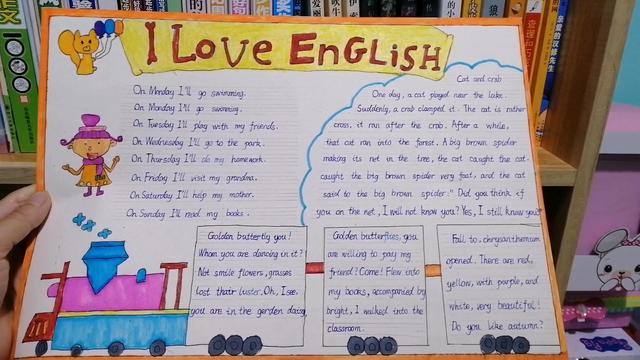 I LOVE ENGLISH
On Monday I'll go swimming.
On Monday I'll go swimming.
On Tuesday I'll play with my friends.
On Wednesday I'll go to the park.
On Thursday I'll do my homework.
On Friday I'll visit my grandma.
On Saturday I'll help my mother.
On Sunday I'll read my books.
Cat and crab
One day, a cat played near the lake.
Suddenly, a crab clamped it. The cat is rather
cross, it ran after the crab. After a while,
that cat ran into the forest. A big brown spider
making its net in the tree, the cat caught the cat
caught the big brown spider very fast, and the cat
said to the big brown spider:" Did you think if
you on the net, I will not know you? Yes, I still know you!"
Golden butterfly you!
Whom you are dancing in it?
Not smile flowers, grasses
lost their luster. Oh, I see,
you are in the garden daisy
Golden butterflies, you
are willing to pay my
friend? Come! Flew into
my books, accompanied by
bright, I walked into the
classroom.
Fall to, chrysanthemum
opened. There are red,
yellow, with purple, and
white, very beautiful!
Do you like autumn?